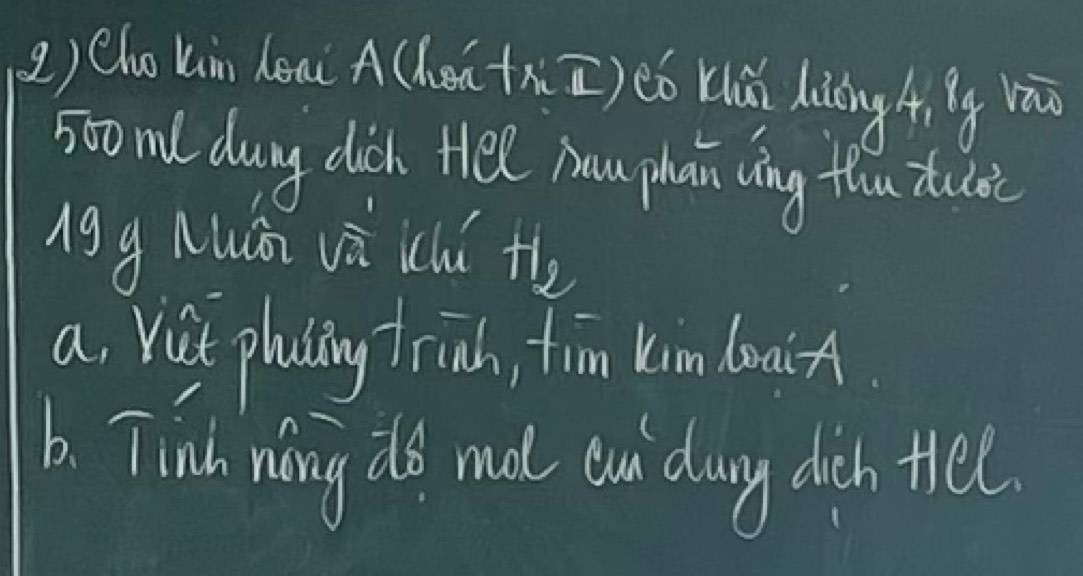 2) Cho kim loại A (hoá trị II) có khối lượng 4,8g vào
500 ml dung dịch HCl sau phản ứng thu được
19 g Muối và khí H₂
a, Viết phương trình, tìm kim loại A.
b. Tính nồng độ mol của dung dịch HCl.